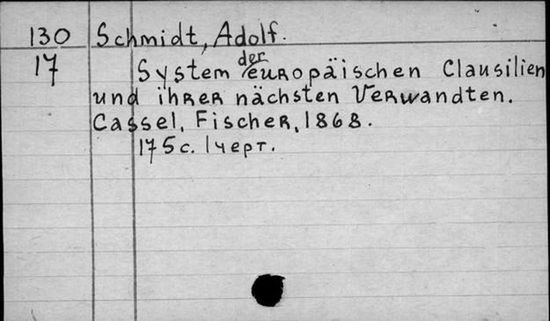 130 Schmidt, Adolf.
17 System der europäischen Clausilien
und ihrer nächsten Verwandten.
Cassel, Fischer, 1868.
175 с. 1 черт.